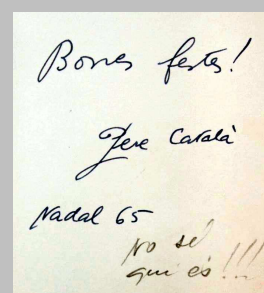 Bones festes!
Pere Català
Nadal 65
No sé
qui és!!!